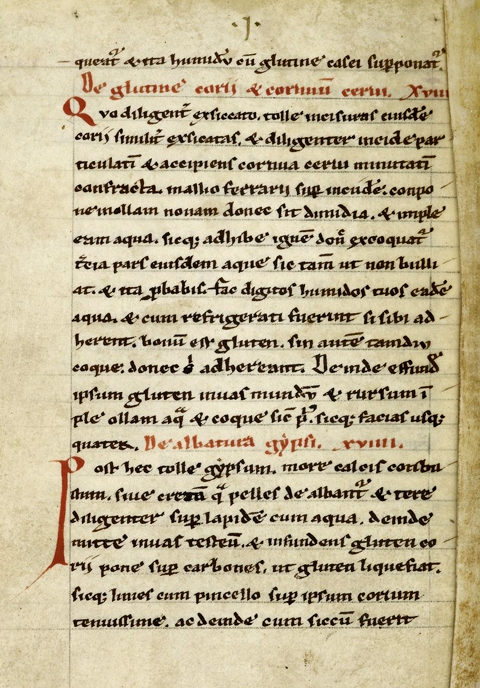 ·I·
querat᷑ & ita humidū cū glutine casei supponat᷑.
De glutine corii & cornuum cerui. XVIII
Quo diligent̓ exsiccato. tolle incisuras eiusdē
corii similit̓ exsicatas. & diligenter incide par
ticulatī & accipiens cornua cerui minutatī
confracta. malleo ferrarii sup̱ incudē. conpo
ne in ollam nouam donec sit dimidia. & imple
eam aqua. sicq; adhibe ignē don̄ excoquat᷑
t̓cia pars eiusdem aque sic tam̄ ut non bulli
at. & ita ꝓbabis. fac digitos humidos tuos eadē
aqua. & cum refrigerati fuerint si sibi ad
herent. bonū est gluten. sin autē tamdiu
coque. donec adhereant. Deinde effund̄
ipsum gluten in uas mundū & rursum ī
ple ollam aq̄ & coque sic p̓. sicq; facias usq;
quater. De albatura gypsi. XVIIII.
Post hec tolle gypsum. more calcis combu
stum. siue cretam q̄ pelles dealbant᷑ & tere
diligenter sup̱ lapidē cum aqua. deinde
mitte in uas testeū. & infundens gluten co
rii pone sup̱ carbones. ut gluten liquefiat.
sicq; linies cum pincello sup̱ ipsum corium
tenuissime. ac deinde cum siccū fuerit